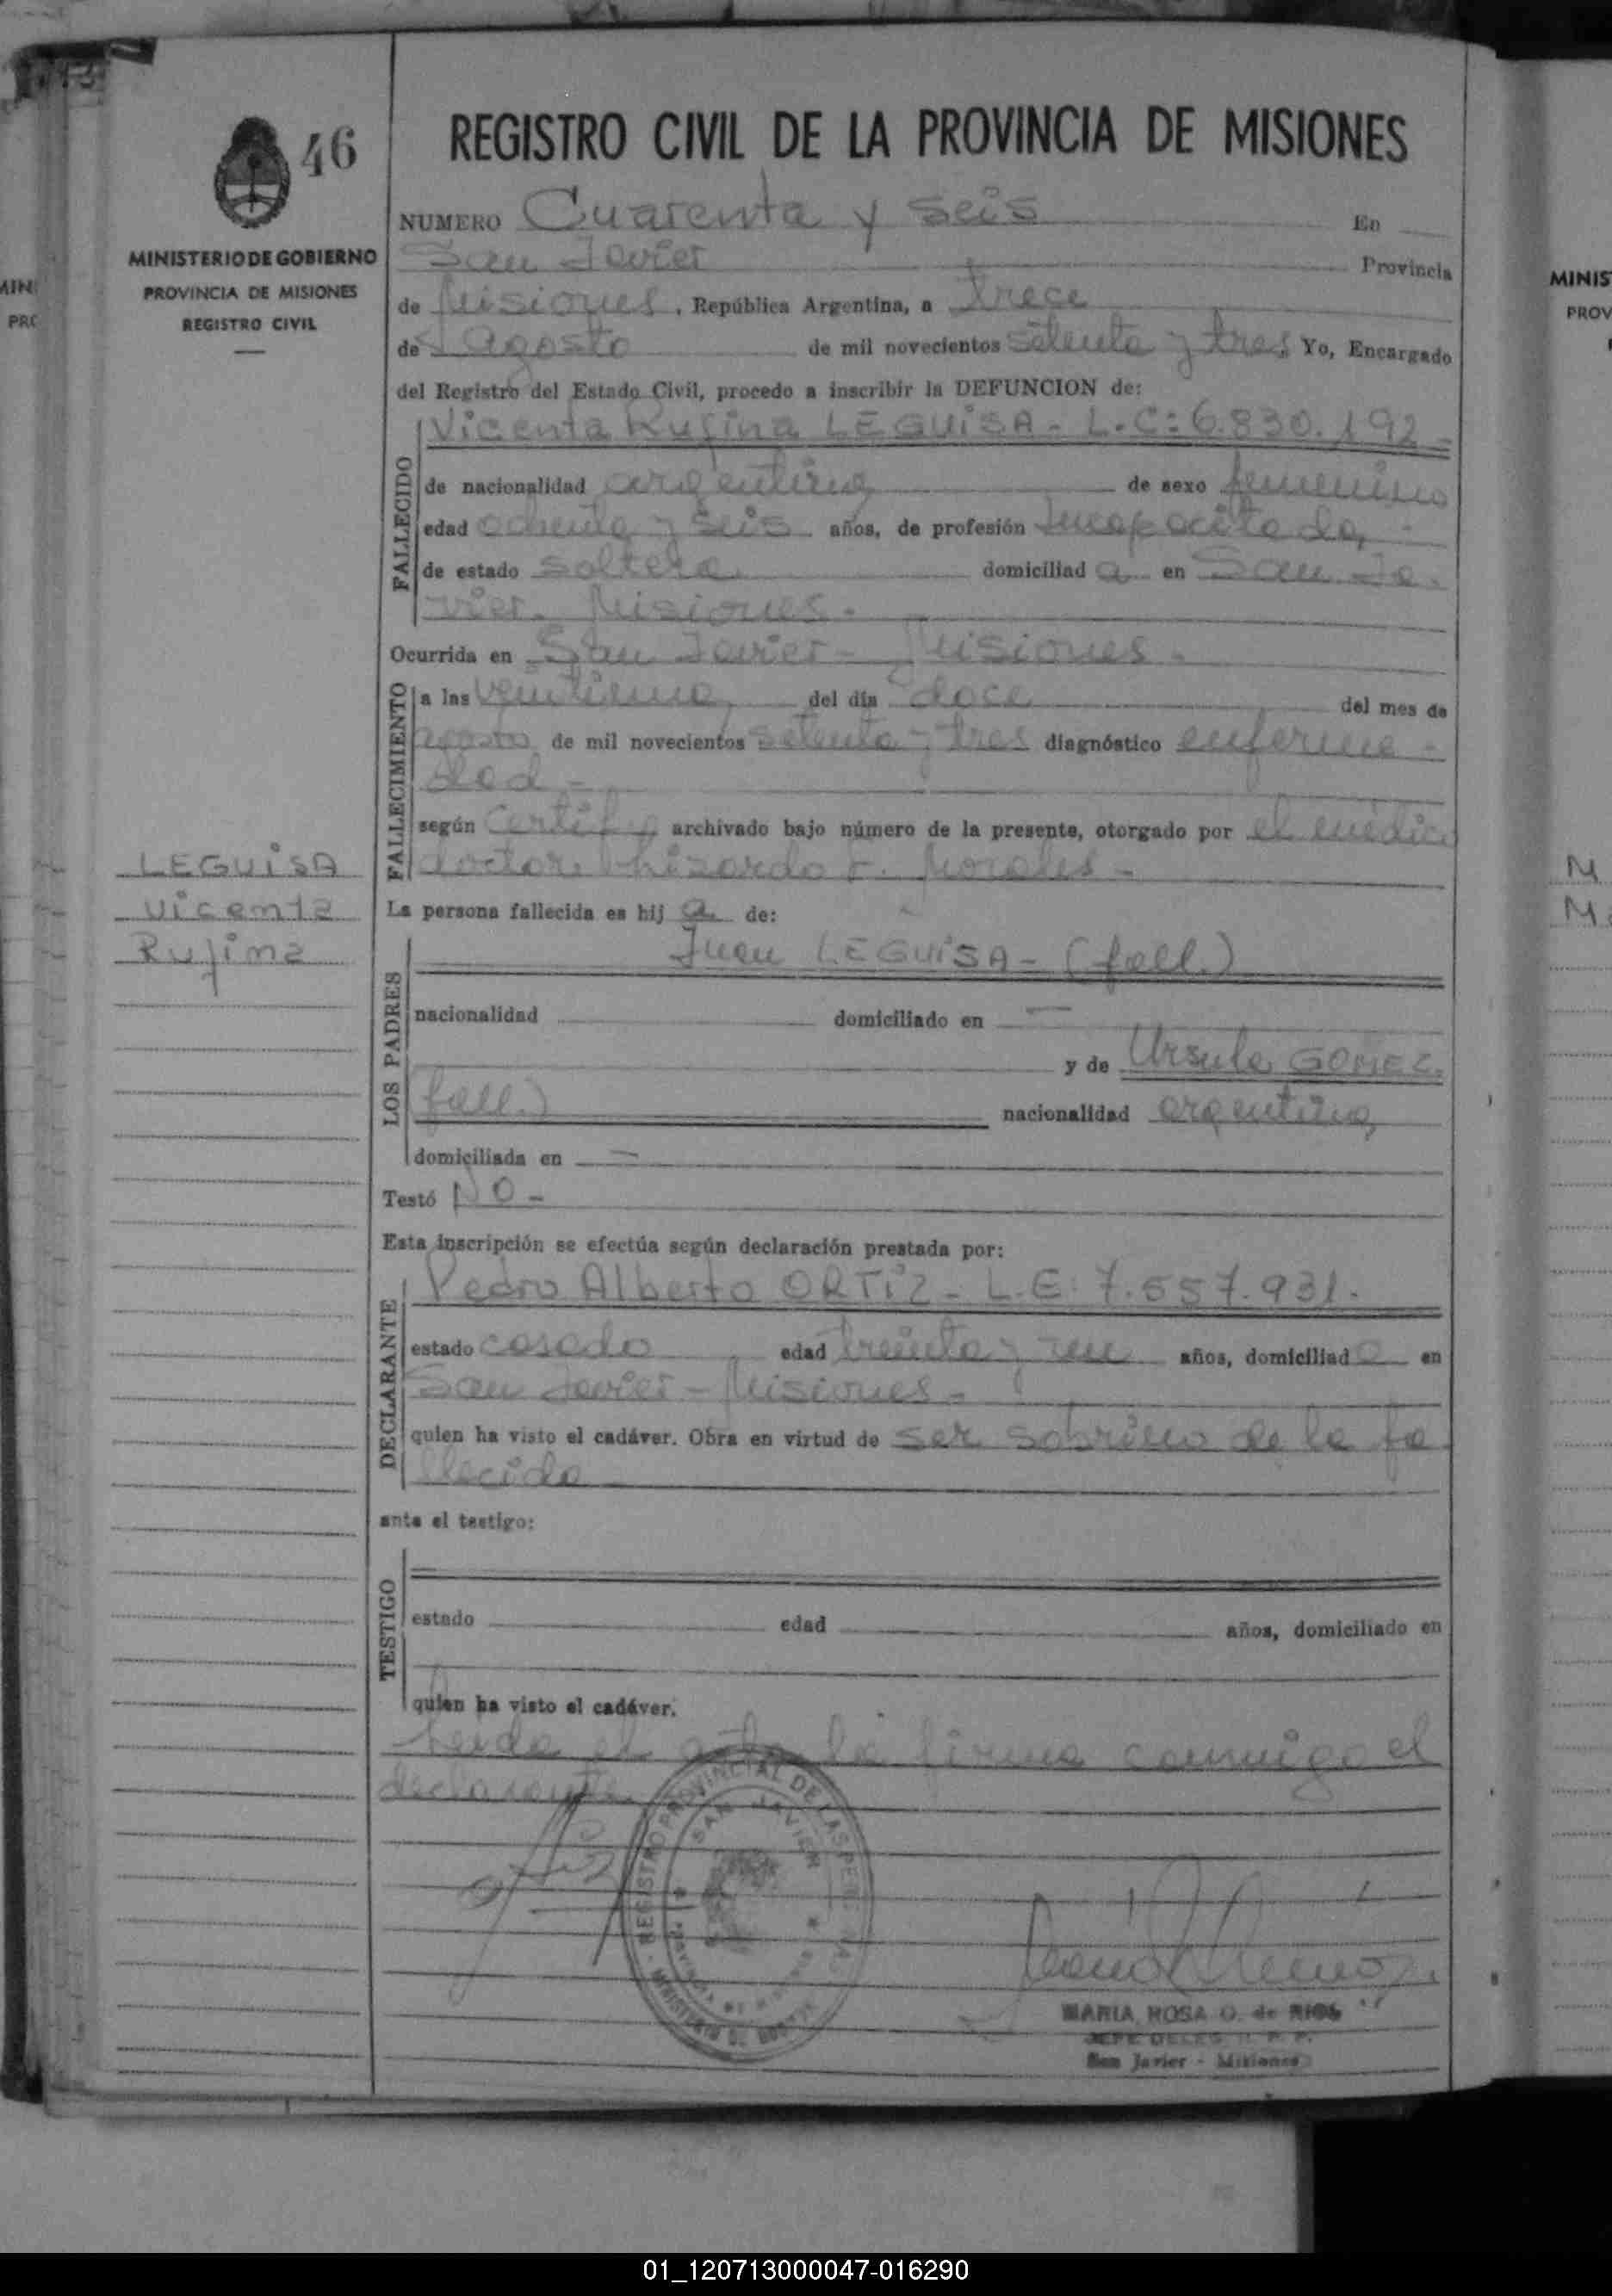 46
MINISTERIO DE GOBIERNO
PROVINCIA DE MISIONES
REGISTRO CIVIL
LEGUiSA
Vicenta
Rufina
REGISTRO CIVIL DE LA PROVINCIA DE MISIONES
NUMERO Cuarenta y seis En
San Javier Provincia
de Misiones, República Argentina, a trece
de Agosto de mil novecientos setenta y tres Yo, Encargado
del Registro del Estado Civil, procedo a inscribir la DEFUNCION de:
FALLECIDO
Vicenta Rufina LEGUiSA - L.C: 6.830.192 -
de nacionalidad argentina de sexo femenino
edad ochenta y seis años, de profesión Incapacitada, -
de estado soltera domiciliad a en San Ja-
vier. Misiones.
Ocurrida en San Javier - Misiones -
FALLECIMIENTO
a las veintiuna, del día doce del mes de
agosto de mil novecientos setenta y tres diagnóstico enferme-
dad -
según archivado bajo número de la presente, otorgado por el médico
doctor Morales -
La persona fallecida es hij a de:
LOS PADRES
Juan LEGUiSA - (fall.)
nacionalidad domiciliado en —
y de Ursula GOMEZ.
fall.) nacionalidad argentina,
domiciliada en —
Testó NO -
Esta inscripción se efectúa según declaración prestada por:
DECLARANTE
Pedro Alberto ORTiZ - L.E: 7.557.931.
estado casado edad treinta y un años, domiciliad o en
San Javier - Misiones -
quien ha visto el cadáver. Obra en virtud de ser sobrino de la fa
llecida
ante el testigo:
TESTIGO
estado edad años, domiciliado en
quien ha visto el cadáver.
Leída el acta la firma conmigo el
declarante
REGISTRO PROVINCIAL DE LAS PERSONAS
SAN JAVIER
MARIA ROSA O. de RIOS
JEFE DELEG. R. P. P.
San Javier - Misiones
MINIS
PROV
01_120713000047-016290